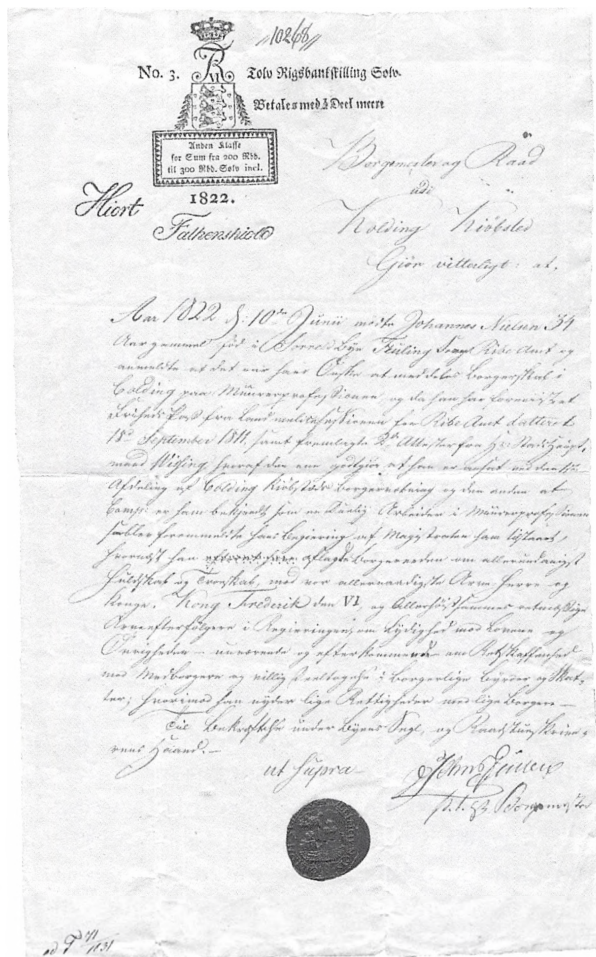 10268
No. 3. Tolv Rigsbankskilling Sølv.
Betales med ½ Deel meere
Anden Klasse
for Sum fra 200 Rbd.
til 300 Rbd. Sølv incl.
1822.
Hiort
Falkenskiold
Borgemester og Raad
udi
Kolding Kiøbsted
Giør vitterligt: at,
Aar 1822 d: 10de Junii mødte Johannes 34
Aar gammel fød i Bye Sogn Ribe Amt og
anmeldte at det var hans Ønske at meddeles Borgerskab i
Colding paa Muurerprofessionen og da han har foreviist
Friheds Pass fra Land for Ribe Amt dateret
18de September 1811, samt fremlagte 2de Attester fra Hr Stadshaupt,
mand Wissing, hvoraf den ene godtgiør at han er ansat ved
Afdeling af Colding Kiøbsteds Borgervæbning og den anden at
er ham bekjendt som en duelig Arbeider i Muurerprofessionen
hans Begiering af Magistraten ham tilstaaet,
hvorefter han aflagde Borgereeden om allerunderdanigst
Huldskab og Troskab, mod vor allernaadigste Arve Herre og
Konge, Kong Frederik den VI, og Allerhøistsammes retmæssige
Arveefterfølgere i Regieringen, om Lydighed mod Lovene og
Øvrigheden - nuværende og efterkommende om Retskaffenhed
mod Medborgere og villig Deeltagelse i borgerlige Byrder og Skat-
ter; hvorimod han nyder lige Rettigheder med lige Borgere -
Til Bekræftelse under Byens Segl, og Raadstueskrive-
rens Haand. -
ut supra
Borgemester